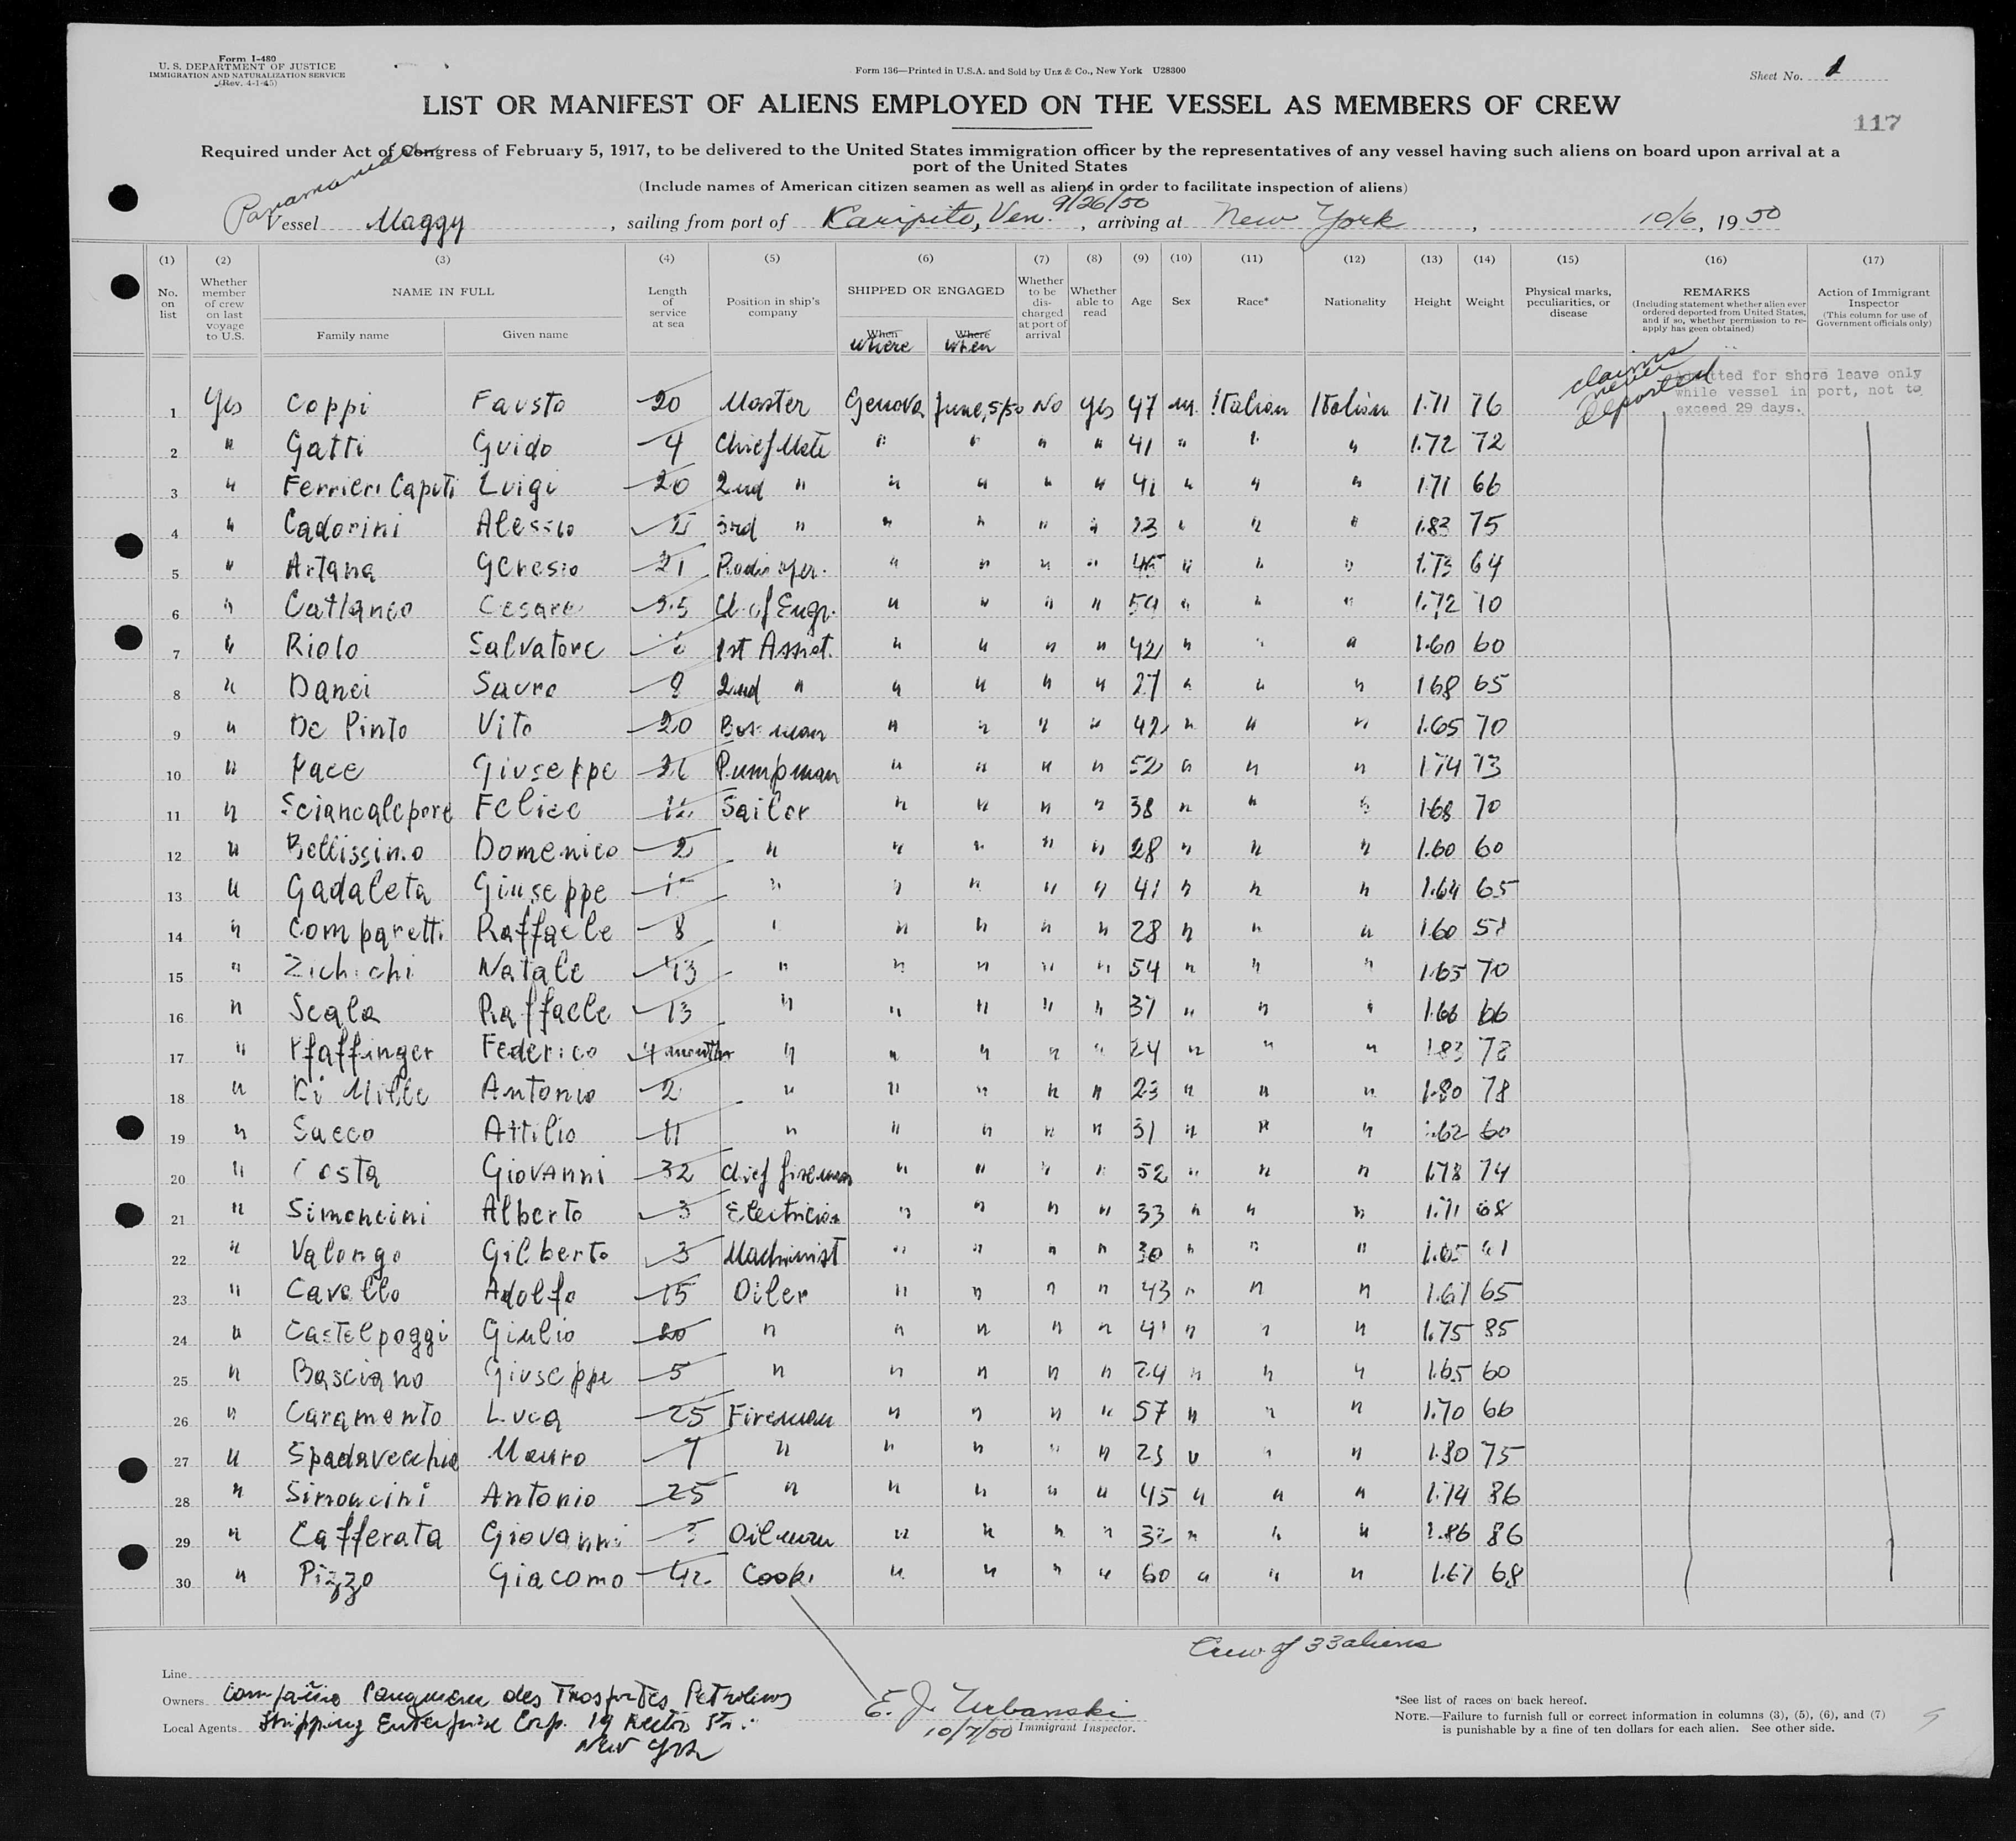 Form I-480
U. S. DEPARTMENT OF JUSTICE
IMMIGRATION AND NATURALIZATION SERVICE
(Rev. 4-1-45)
Form 136—Printed in U.S.A. and Sold by Unz & Co., New York U28300
Sheet No. 1
LIST OR MANIFEST OF ALIENS EMPLOYED ON THE VESSEL AS MEMBERS OF CREW
117
Required under Act of Congress of February 5, 1917, to be delivered to the United States immigration officer by the representatives of any vessel having such aliens on board upon arrival at a
port of the United States
(Include names of American citizen seamen as well as aliens in order to facilitate inspection of aliens)
Panamanian
Vessel Maggy, sailing from port of Caripito, Ven. 9/26/50, arriving at New York, 10/6, 1950
(1) (2) (3) (4) (5) (6) (7) (8) (9) (10) (11) (12) (13) (14) (15) (16) (17)
No. on list
Whether member of crew on last voyage to U.S.
NAME IN FULL
Family name Given name
Length of service at sea
Position in ship's company
SHIPPED OR ENGAGED
When Where
where when
Whether to be discharged at port of arrival
Whether able to read
Age
Sex
Race*
Nationality
Height
Weight
Physical marks, peculiarities, or disease
REMARKS
(Including statement whether alien ever ordered deported from United States, and if so, whether permission to reapply has been obtained)
Action of Immigrant Inspector
(This column for use of Government officials only)
claims never deported
admitted for shore leave only
while vessel in port, not to
exceed 29 days.
1 Yes Coppi Fausto 20 Master Genova June,5/50 No Yes 47 m. Italian Italian 1.71 76
2 " Gatti Guido 4 Chief Mate " " " " 41 " " " 1.72 72
3 " Ferrieri Caputi Luigi 20 2nd " " " " " 41 " " " 1.71 66
4 " Cadorini Alessio 3rd " " " " " 23 " " " 1.83 75
5 " Artana Genesio 21 Radio oper. " " " " 45 " " " 1.73 64
6 " Cattaneo Cesare 35 Chief Engr. " " " " 59 " " " 1.72 70
7 " Riolo Salvatore 1st Assist. " " " " 42 " " " 1.60 60
8 " Danei Sauro 9 2nd " " " " " 27 " " " 1.68 65
9 " De Pinto Vito 20 Bosman " " " " 42 " " " 1.65 70
10 " Pace Giuseppe Pumpman " " " " 52 " " " 1.74 73
11 " Sciancalepore Felice 12 Sailor " " " " 38 " " " 1.68 70
12 " Bellissimo Domenico 2 " " " " " 28 " " " 1.60 60
13 " Gadaleta Giuseppe " " " " " 41 " " " 1.64 65
14 " Comparetti Raffaele 8 " " " " " 28 " " " 1.60 51
15 " Zichichi Natale 13 " " " " " 54 " " " 1.65 70
16 " Scala Raffaele 13 " " " " " 37 " " " 1.66 66
17 " Pfaffinger Federico 4 months " " " " " 24 " " " 1.83 78
18 " Di Mille Antonio 2 " " " " " 23 " " " 1.80 78
19 " Sacco Attilio 11 " " " " " 31 " " " 1.62 60
20 " Costa Giovanni 32 Chief fireman " " " " 52 " " " 1.78 74
21 " Simoncini Alberto 3 Electrician " " " " 33 " " " 1.71 68
22 " Valongo Gilberto 3 Machinist " " " " 30 " " " 1.65 61
23 " Cavallo Adolfo 15 Oiler " " " " 43 " " " 1.67 65
24 " Castelpoggi Giulio 20 " " " " " 41 " " " 1.75 85
25 " Basciano Giuseppe 5 " " " " " 24 " " " 1.65 60
26 " Caramento Luca 25 Fireman " " " " 57 " " " 1.70 66
27 " Spadavecchia Mauro 7 " " " " " 23 " " " 1.80 75
28 " Simoncini Antonio 25 " " " " " 45 " " " 1.74 86
29 " Cafferata Giovanni Oilman " " " " 32 " " " 1.86 86
30 " Pizzo Giacomo 42 Cook " " " " 60 " " " 1.67 68
Crew of 33 aliens
Line
Owners Des Petroliers
Local Agents Shipping Enterprise Corp. 19 Rector Str.
New York
E. J. Urbanski
10/7/50 Immigrant Inspector.
*See list of races on back hereof.
NOTE.—Failure to furnish full or correct information in columns (3), (5), (6), and (7)
is punishable by a fine of ten dollars for each alien. See other side.